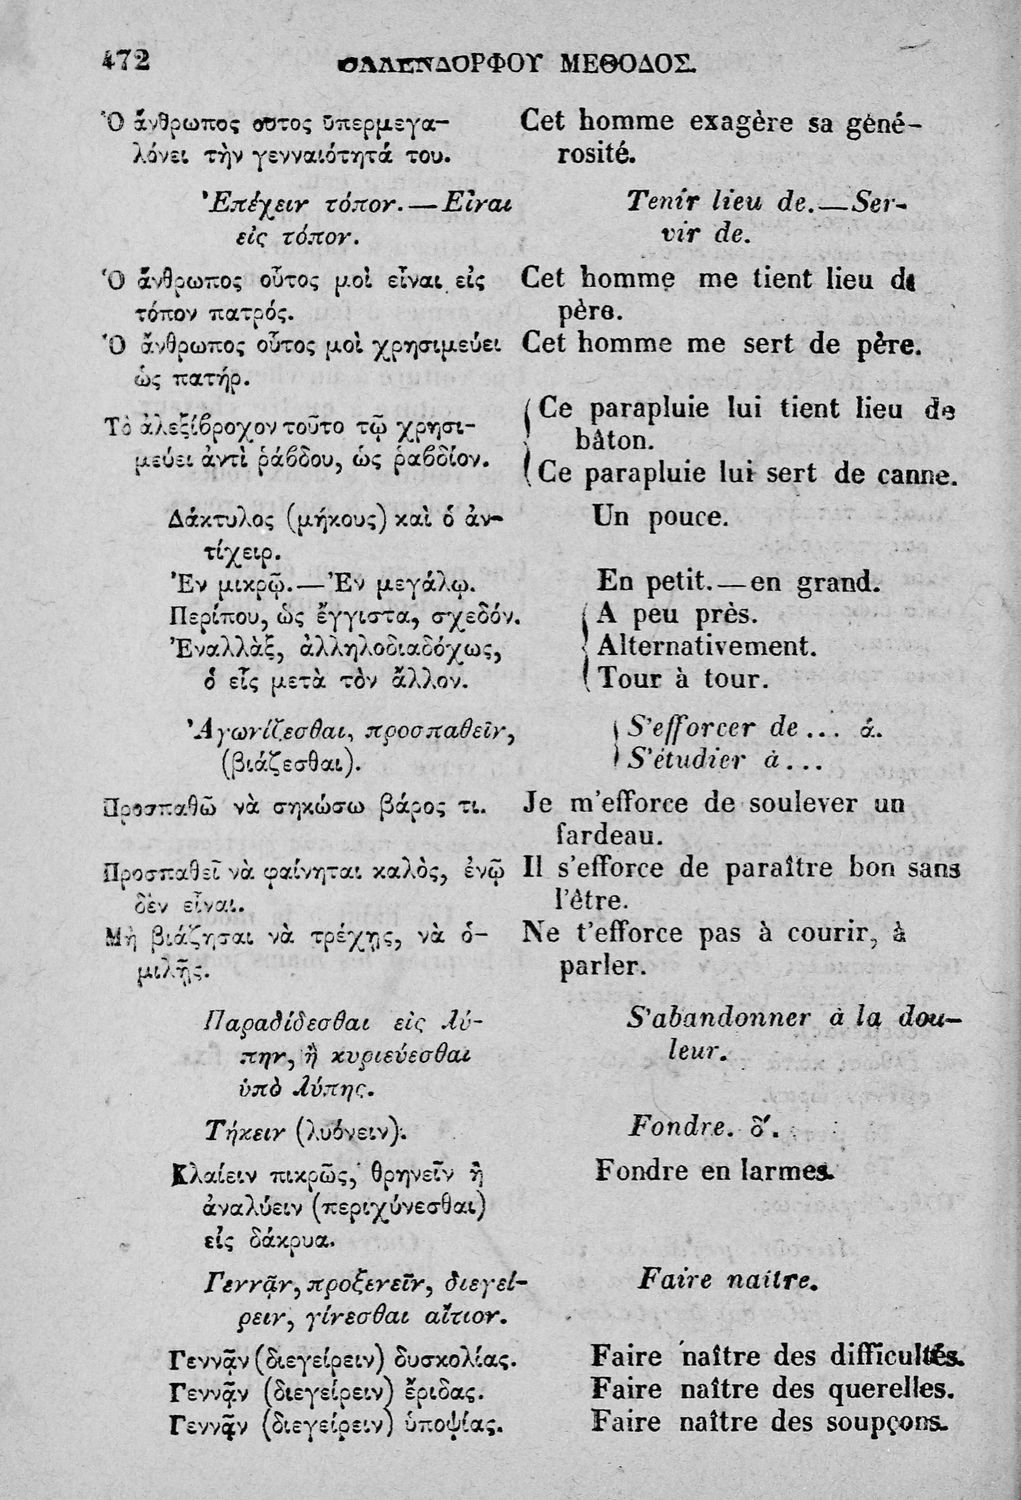 472 ΟΛΛΕΝΔΟΡΦΟΥ ΜΕΘΟΔΟΣ.
Ὁ ἄνθρωπος οὗτος ὑπερμεγα-
λόνει τὴν γενναιότητά του.
Ἐπέχειν τόπον.—Εἶναι
εἰς τόπον.
Ὁ ἄνθρωπος οὗτος μοὶ εἶναι εἰς
τόπον πατρός.
Ὁ ἄνθρωπος οὗτος μοὶ χρησιμεύει
ὡς πατήρ.
Τὸ ἀλεξίβροχον τοῦτο τῷ χρησι-
μεύει ἀντὶ ῥάβδου, ὡς ῥαβδίον.
Δάκτυλος (μήκους) καὶ ὁ ἀν-
τίχειρ.
Ἐν μικρῷ.—Ἐν μεγάλῳ.
Περίπου, ὡς ἔγγιστα, σχεδόν.
Ἐναλλὰξ, ἀλληλοδιαδόχως,
ὁ εἷς μετὰ τὸν ἄλλον.
Ἀγωνίζεσθαι, προσπαθεῖν,
(βιάζεσθαι).
Προσπαθῶ νὰ σηκώσω βάρος τι.
Προσπαθεῖ νὰ φαίνηται καλὸς, ἐνῷ
δὲν εἶναι.
Μὴ βιάζησαι νὰ τρέχῃς, νὰ ὁ-
μιλῇς.
Παραδίδεσθαι εἰς λύ-
πην, ἢ κυριεύεσθαι
ὑπὸ λύπης.
Τήκειν (λυόνειν).
Κλαίειν πικρῶς, θρηνεῖν ἢ
ἀναλύειν (περιχύνεσθαι)
εἰς δάκρυα.
Γεννᾷν, προξενεῖν, διεγεί-
ρειν, γίνεσθαι αἴτιον.
Γεννᾷν (διεγείρειν) δυσκολίας.
Γεννᾷν (διεγείρειν) ἔριδας.
Γεννᾷν (διεγείρειν) ὑποψίας.
Cet homme exagère sa géné-
rosité.
Tenir lieu de.—Ser-
vir de.
Cet homme me tient lieu de
père.
Cet homme me sert de père.
Ce parapluie lui tient lieu de
bâton.
Ce parapluie lui sert de canne.
Un pouce.
En petit.—en grand.
A peu près.
Alternativement.
Tour à tour.
S'efforcer de... á.
S'étudier à...
Je m'efforce de soulever un
fardeau.
Il s'efforce de paraître bon sans
l'être.
Ne t'efforce pas à courir, à
parler.
S'abandonner à la dou-
leur.
Fondre. δ'.
Fondre en larmes.
Faire naître.
Faire naître des difficultés.
Faire naître des querelles.
Faire naître des soupçons.